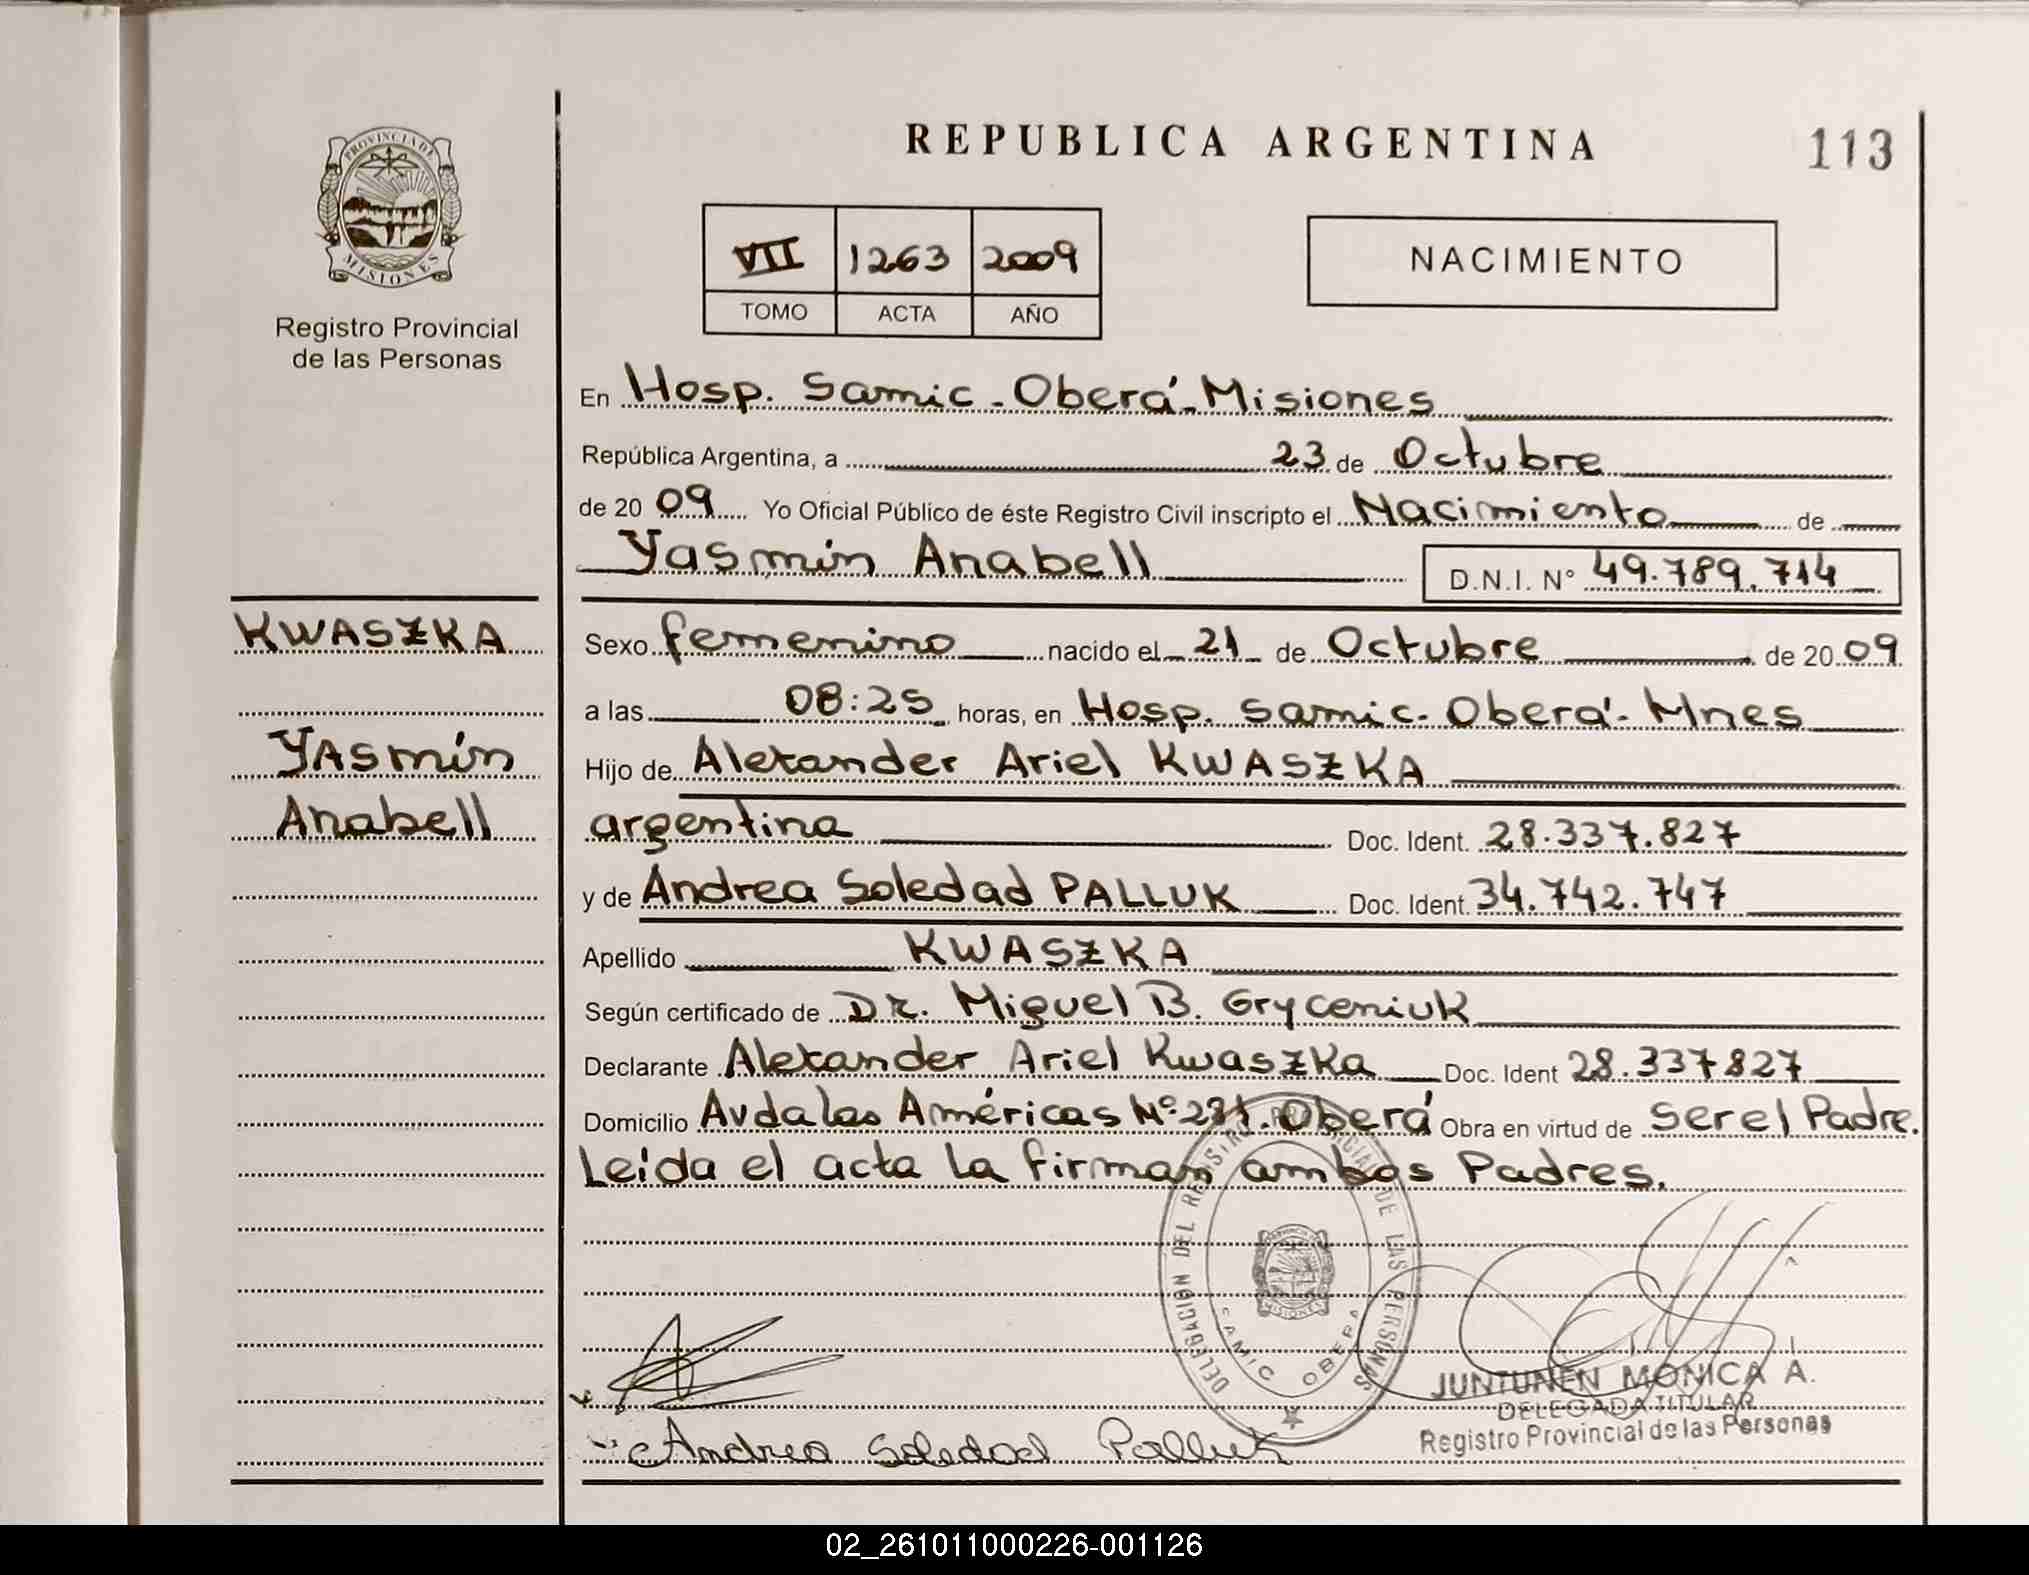 REPUBLICA ARGENTINA
113
PROVINCIA DE
MISIONES
Registro Provincial
de las Personas
VII 1263 2009
TOMO ACTA AÑO
NACIMIENTO
En Hosp. Samic - Oberá - Misiones
República Argentina, a 23 de Octubre
de 20 09 Yo Oficial Público de éste Registro Civil inscripto el Nacimiento de
Yasmín Anabell D.N.I. N° 49.789.714
KWASZKA
Yasmín
Anabell
Sexo femenino nacido el 21 de Octubre de 20 09
a las 08:25 horas, en Hosp. Samic - Oberá - Mnes
Hijo de Alexander Ariel KWASZKA
argentina Doc. Ident. 28.337.827
y de Andrea Soledad PALLUK Doc. Ident. 34.742.747
Apellido KWASZKA
Según certificado de Dr. Miguel B. Gryceniuk
Declarante Alexander Ariel Kwaszka Doc. Ident 28.337827
Domicilio Avda las Américas Nº Oberá Obra en virtud de ser el Padre.
Leída el acta la firman ambos Padres.
DELEGACION DEL REGISTRO PROVINCIAL DE LAS PERSONAS
SAMIC OBERA
MISIONES
JUNTUNEN MONICA A.
DELEGADA TITULAR
Registro Provincial de las Personas
Andrea Soledad Palluk
02_261011000226-001126